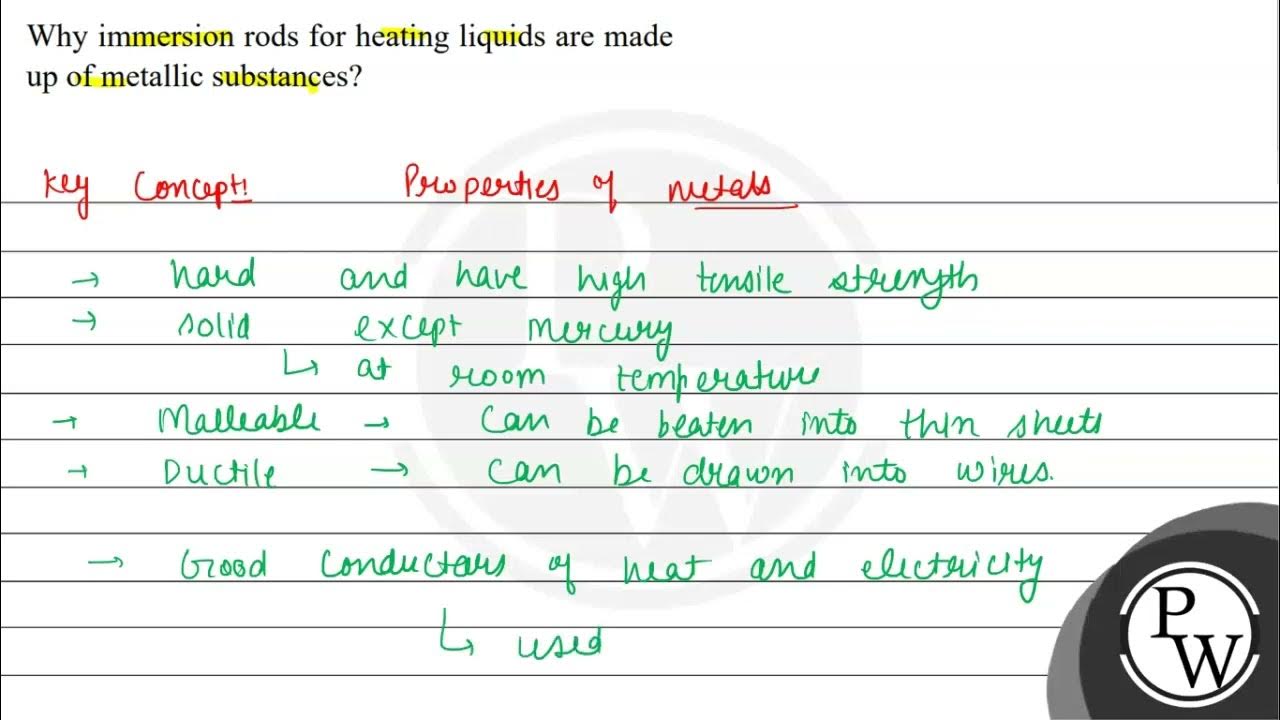 Why immersion rods for heating liquids are made
up of metallic substances?
Key Concept: Properties of metals
→ hard and have high tensile strength
→ solid except mercury
↳ at room temperature
→ Malleable → can be beaten into thin sheets
→ Ductile → can be drawn into wires.
→ Good conductors of heat and electricity
↳ used
PW
PW